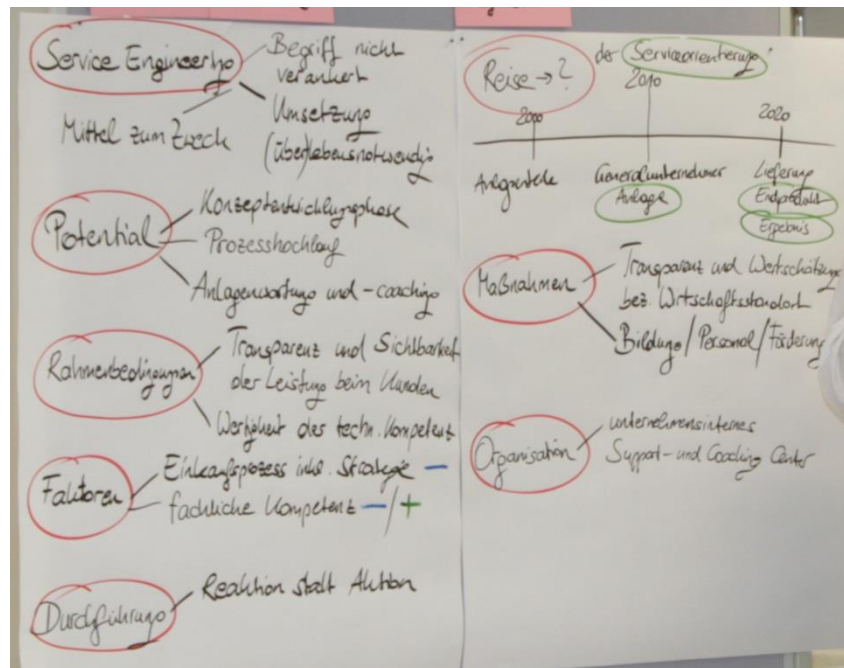 Service Engineering
Begriff nicht
verankert
Mittel zum Zweck
Umsetzung
(über)lebensnotwendig
Potential
Konzeptentwicklungsphase
Prozesshochlauf
Anlagenwartung und -coaching
Rahmenbedingungen
Transparenz und Sichtbarkeit
der Leistung beim Kunden
Wertigkeit der techn. Kompetenz
Faktoren
Einkaufsprozess inkl. Strategie –
fachliche Kompetenz –/+
Durchführung
Reaktion statt Aktion
Reise → ?
der Serviceorientierung
2000
2010
2020
Anlagenteile
Generalunternehmer
Anlage
Lieferung
Endprodukt
Ergebnis
Maßnahmen
Transparenz und Wertschätzung
bez. Wirtschaftsstandort
Bildung/Personal/Förderung
Organisation
unternehmensinternes
Support- und Coaching Center